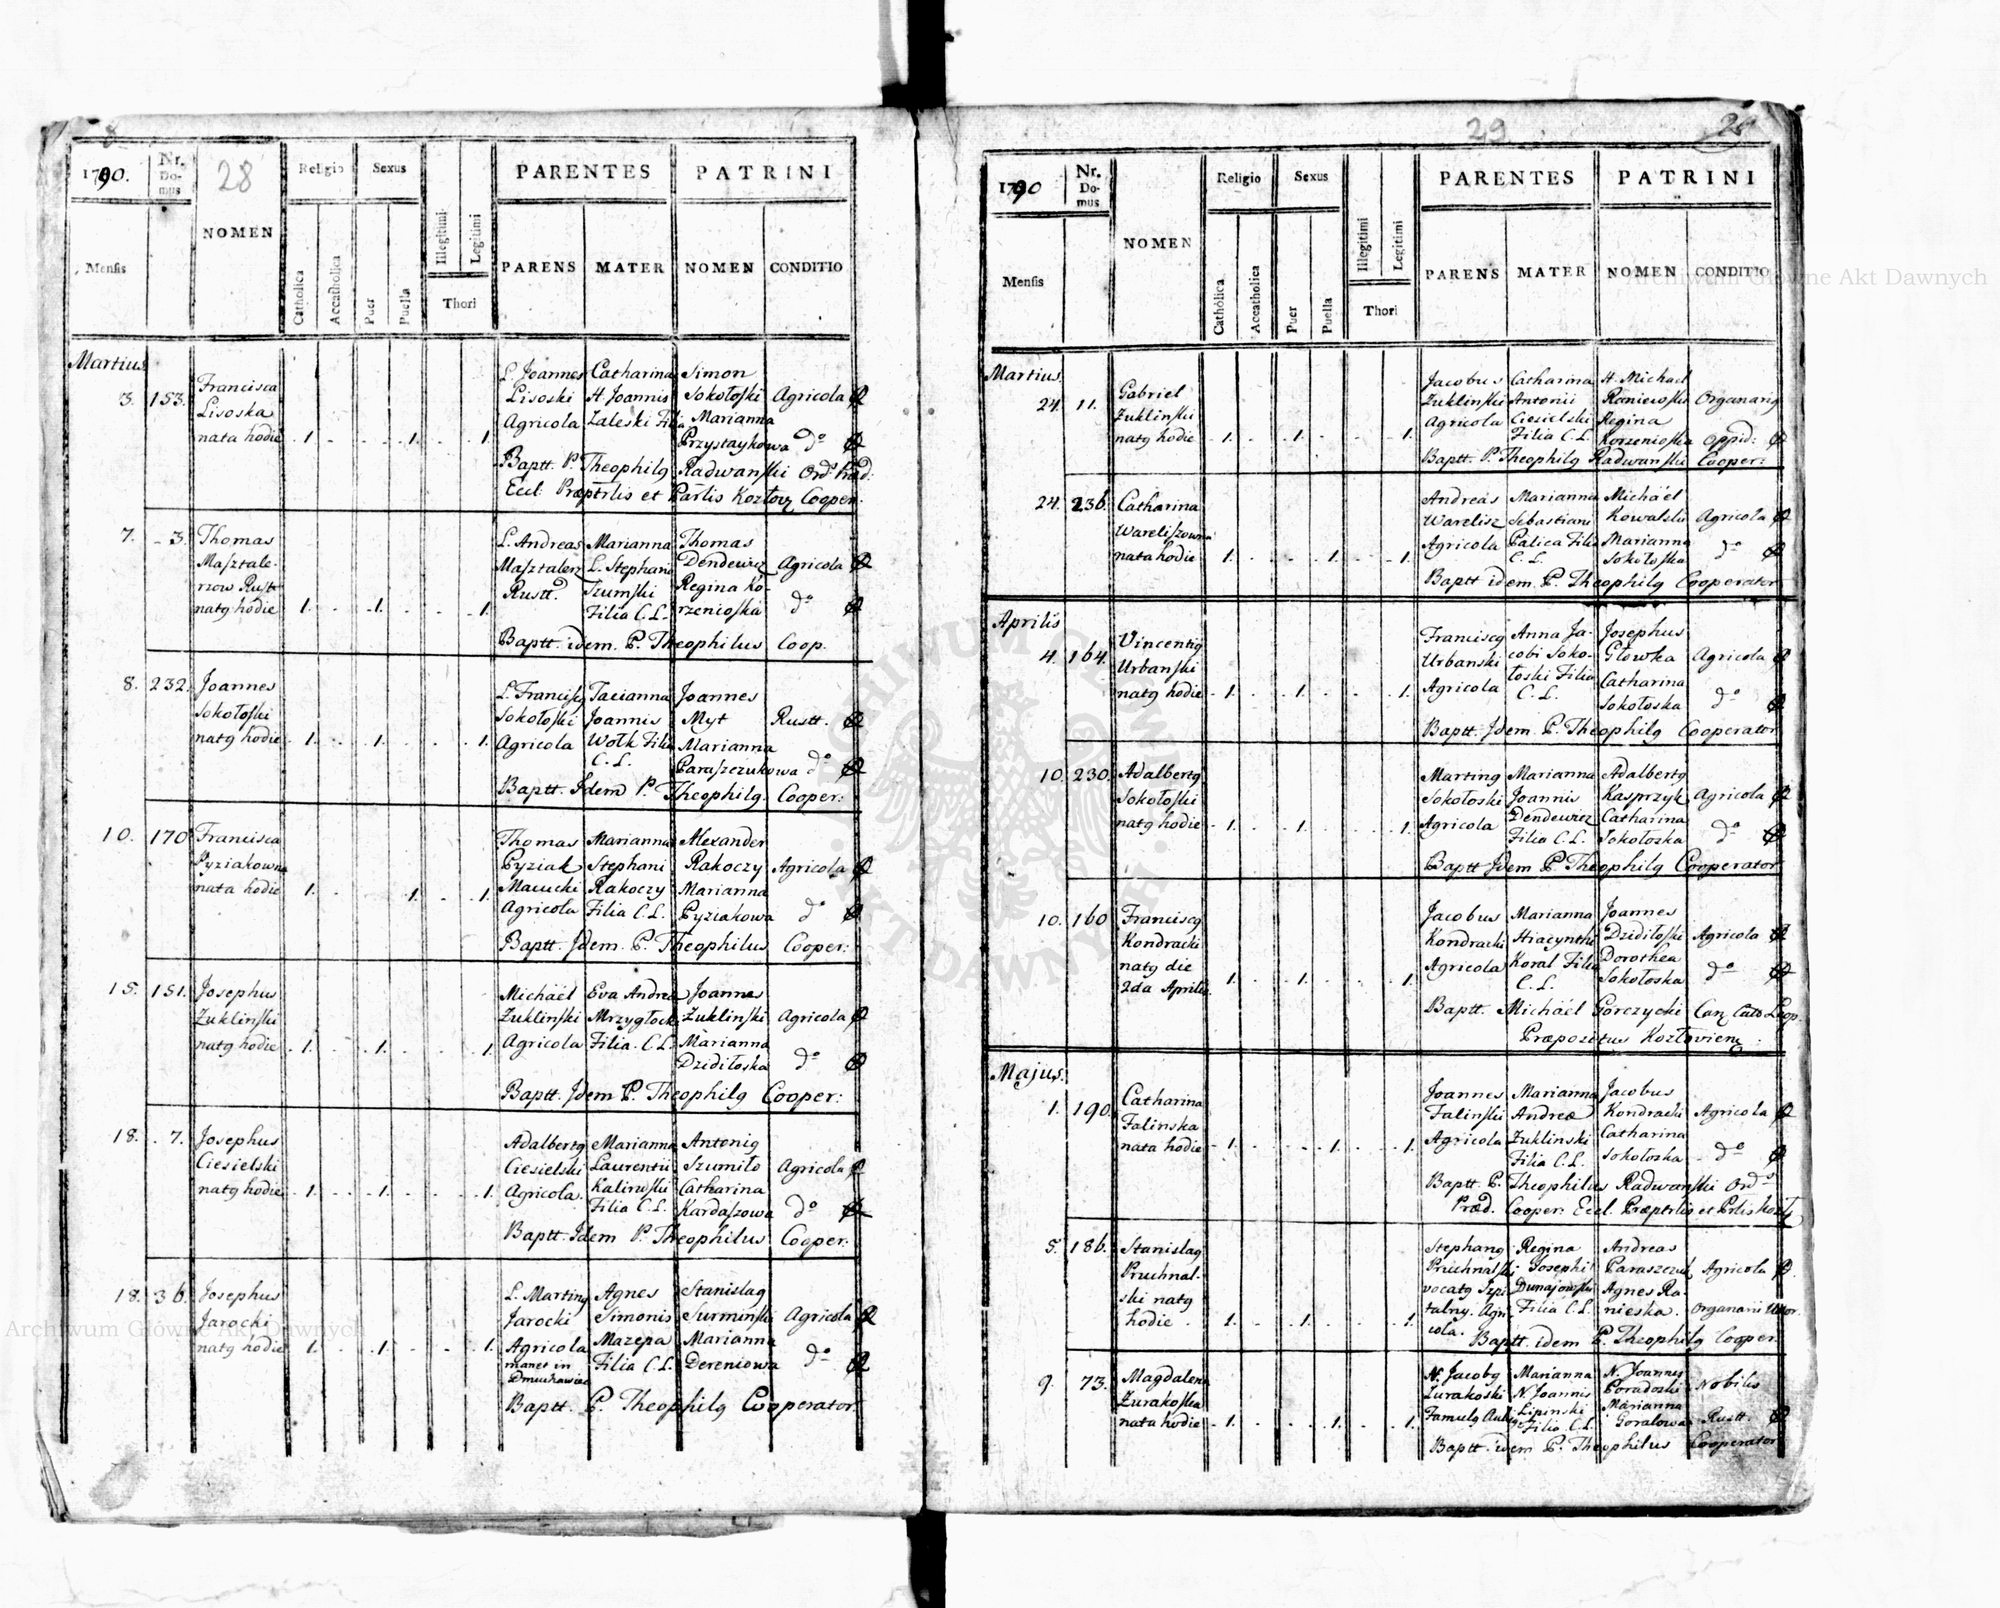 8
1790.
Nr. Domus
28
NOMEN
Religio
Sexus
Illegitimi
Legitimi
Thori
PARENTES
PATRINI
Mensis
Catholica
Accatholica
Puer
Puella
PARENS
MATER
NOMEN
CONDITIO
Martius
3. 153. Francisca Lisoska nata hodie 1. 1. 1.
L. Joannes Lisoski Agricola
Catharina H. Joannis Zaleski Filia
Simon Sokołoski Agricola
Marianna Przystaykowa do
Baptt. P. Theophilg Radwanski Ord. Præd:
Eccl. Præptrlis et Parlis Kozłov Cooper.
7. 3. Thomas Masztalerzow Rustt natg hodie 1. 1. 1.
L. Andreas Masztalerz Rustt.
Marianna L. Stephani Szumski Filia C. L.
Thomas Dendewicz Agricola
Regina Korzenioska do
Baptt. idem. P. Theophilus Coop.
8. 232. Joannes Sokołoski natg hodie 1. 1. 1.
L. Franciscg Sokołoski Agricola
Tacianna Joannis Wołk Filia C. L.
Joannes Myt Rustt.
Marianna Paraszczukowa do
Baptt. Idem P. Theophilg. Cooper:
10. 170 Francisca Pyziakowna nata hodie 1. 1. 1.
Thomas Pyziak Agricola
Marianna Stephani Rakoczy Filia C. L.
Alexander Rakoczy Agricola
Marianna Pyziakowa do
Baptt. Idem. P. Theophilus Cooper:
15. 151. Josephus Zuklinski natg hodie 1. 1. 1.
Michaël Zuklinski Agricola
Eva Andreæ Mrzygłocki Filia. C. L.
Joannes Zuklinski Agricola
Marianna Dzidiłoska do
Baptt. Idem P. Theophilg Cooper:
18. 7. Josephus Ciesielski natg hodie 1. 1. 1.
Adalbertg Ciesielski Agricola.
Marianna Laurentii Kalinoski Filia C. L.
Antonig Szumiło Agricola
Catharina Kardaszowa do
Baptt. Idem P. Theophilus Cooper:
18. 36. Josephus Jarocki natg hodie 1. 1. 1.
L. Marting Jarocki Agricola manet in Dmuchawiec
Agnes Simonis Mazepa Filia C. L.
Stanislag Surminski Agricola
Marianna Dereniowa do
Baptt. P. Theophilg Cooperator
29
1790
Nr. Domus
NOMEN
Religio
Sexus
Illegitimi
Legitimi
Thori
PARENTES
PATRINI
Mensis
Catholica
Accatholica
Puer
Puella
PARENS
MATER
NOMEN
CONDITIO
Martius
24. 11. Gabriel Zuklinski natg hodie 1. 1. 1.
Jacobus Zuklinski Agricola
Catharina Antonii Ciesielski Filia C. L.
H. Michael Raniewski Organarg
Regina Korzenioska Oppid:
Baptt. P. Theophilg Radwanski Cooper:
24. 236. Catharina Wareliszowna nata hodie 1. 1. 1.
Andreas Warelisz Agricola
Marianna Sebastiani Palica Filia C. L.
Michaël Kowalski Agricola
Marianna Sokołoska do
Baptt idem P. Theophilg Cooperator
Aprilis
4. 164. Vincentig Urbanski natg hodie 1. 1. 1.
Franciscg Urbanski Agricola
Anna Jacobi Sokołoski Filia C. L.
Josephus Głowka Agricola
Catharina Sokołoska do
Baptt. Idem P. Theophilg Cooperator
10. 230. Adalbertg Sokołoski natg hodie 1. 1. 1.
Marting Sokołoski Agricola
Marianna Joannis Dendewicz Filia C. L.
Adalbertg Kasprzyk Agricola
Catharina Sokołoska do
Baptt Idem P. Theophilg Cooperator
10. 160 Franciscg Kondracki natg die 2da Aprilis 1. 1. 1.
Jacobus Kondracki Agricola
Marianna Hiacynthi Koral Filia C. L.
Joannes Dzidiłoski Agricola
Dorothea Sokołoska do
Baptt. Michaël Gorczycki Præpozitus Kozłovieng
Majus.
1. 190. Catharina Falinska nata hodie 1. 1. 1.
Joannes Falinski Agricola
Marianna Andreæ Zuklinski Filia C. L.
Jacobus Kondracki Agricola
Catharina Sokołoska do
Baptt. P. Theophilus Radwanski Ord.
Præd. Cooper. Eccl. Præptrlis et Prlis
5. 186. Stanislag Pruchnalski natg hodie 1. 1. 1.
Stephang Pruchnalski vocatg Szpitalny. Agricola.
Regina Josephi Dunajowski Filia C. L.
Andreas Paraszczuk Agricola
Agnes Ranieska. Organarii Uxor.
Baptt. idem P. Theophilg Cooper.
9. 73. Magdalena Zurakoska nata hodie 1. 1. 1.
N. Jacobg Zurakoski Famulg
Marianna N. Joannis Lipinski Filia C. L.
N. Joannes Poradoski Nobilis
Marianna Goralowa Rustt.
Baptt. idem P. Theophilus Cooperator
Archiwum Główne Akt Dawnych
Archiwum Główne Akt Dawnych
ARCHIWUM GŁÓWNE AKT DAWNYCH